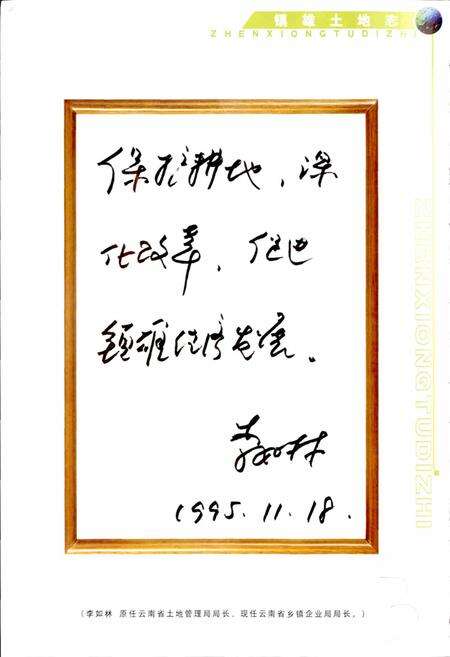 镇雄土地志
ZHENXIONGTUDIZHI
保护耕地，深
化改革，促进
镇雄经济发展。
李如林
1995.11.18.
ZHENXIONGTUDIZHI
（李如林 原任云南省土地管理局局长、现任云南省乡镇企业局局长。）
3